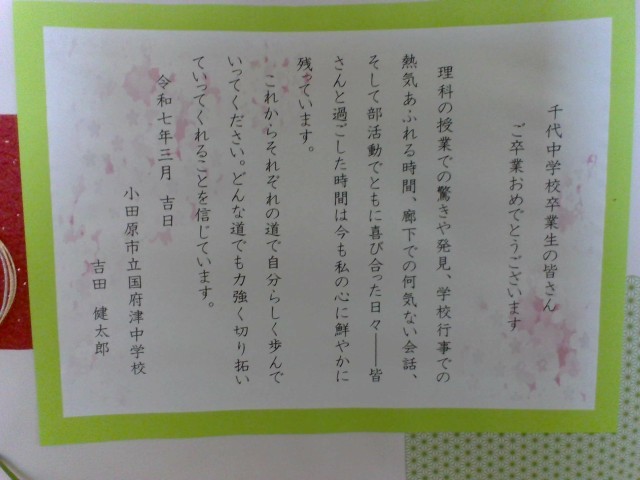 千代中学校卒業生の皆さん
ご卒業おめでとうございます
理科の授業での驚きや発見、学校行事での
熱気あふれる時間、廊下での何気ない会話、
そして部活動でともに喜び合った日々――皆
さんと過ごした時間は今も私の心に鮮やかに
残っています。
これからそれぞれの道で自分らしく歩んで
いってください。どんな道でも力強く切り拓い
ていってくれることを信じています。
令和七年三月　吉日
小田原市立国府津中学校
吉田　健太郎